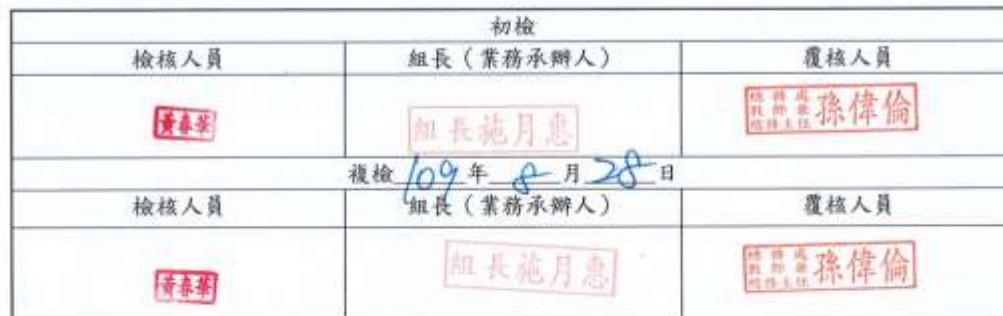 初檢
檢核人員 組長（業務承辦人） 覆核人員
黃春華 組長施月惠 總務處 教師兼 總務主任 孫偉倫
複檢 109 年 8 月 28 日
檢核人員 組長（業務承辦人） 覆核人員
黃春華 組長施月惠 總務處 教師兼 總務主任 孫偉倫